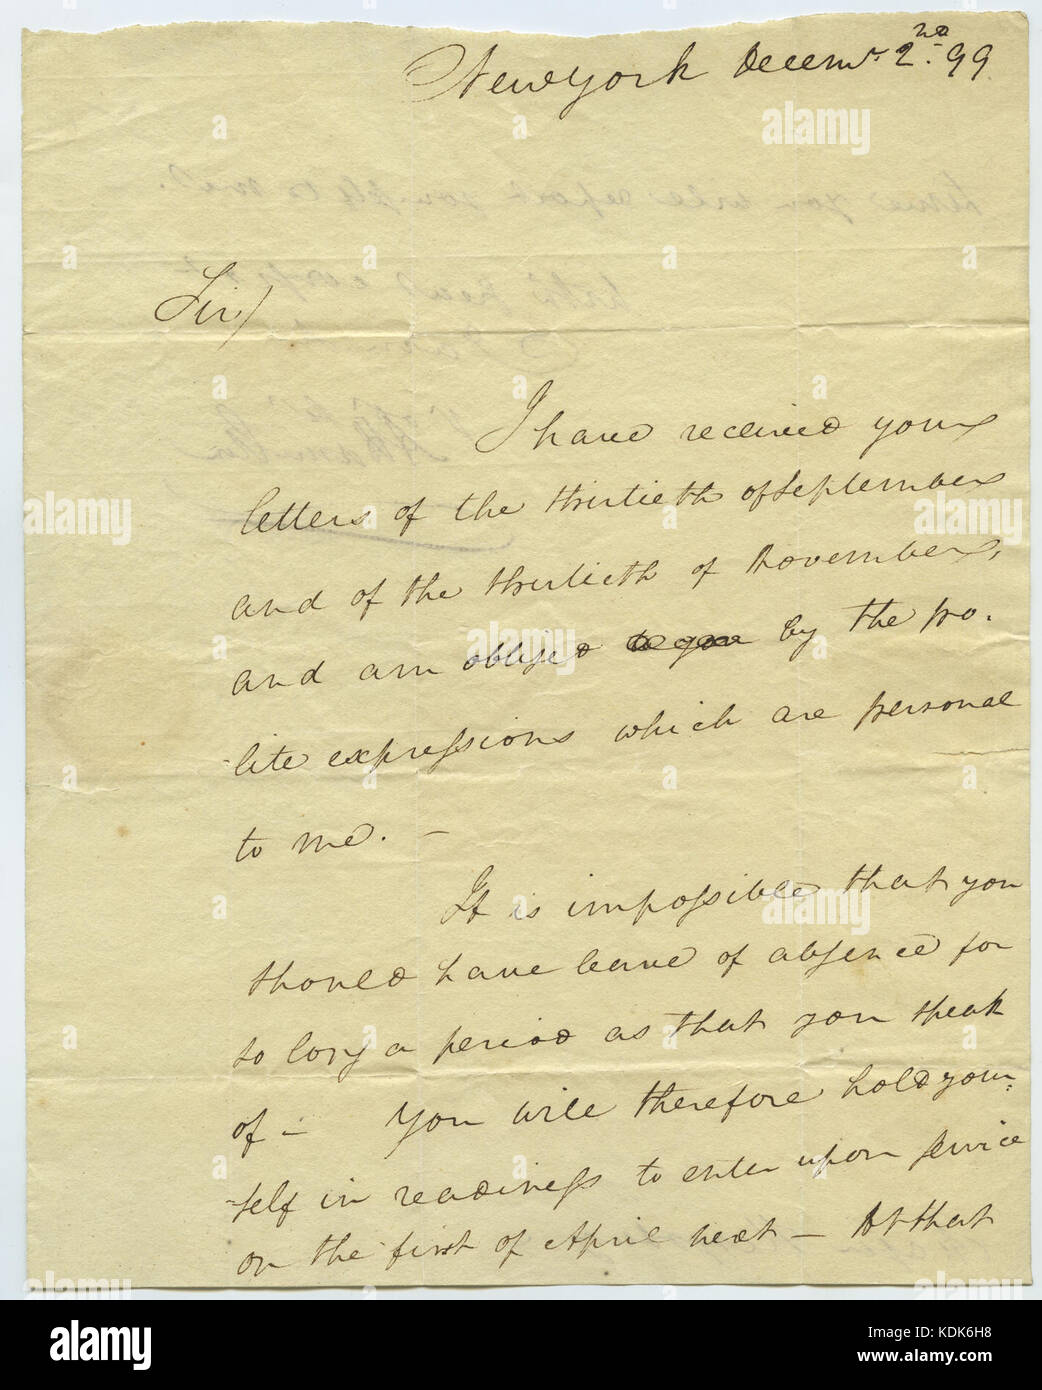 New York Decemr. 2nd. 99
Sir/
I have received your
letters of the thirtieth of September
and of the thirtieth of November,
and am obliged to you by the po.
-lite expressions which are personal
to me. —
It is impossible that you
should have leave of absence for
so long a period as that you speak
of — You will therefore hold your:
-self in readiness to enter upon service
on the first of April next — At that
alamy
alamy
Image ID: KDK6H8
www.alamy.com